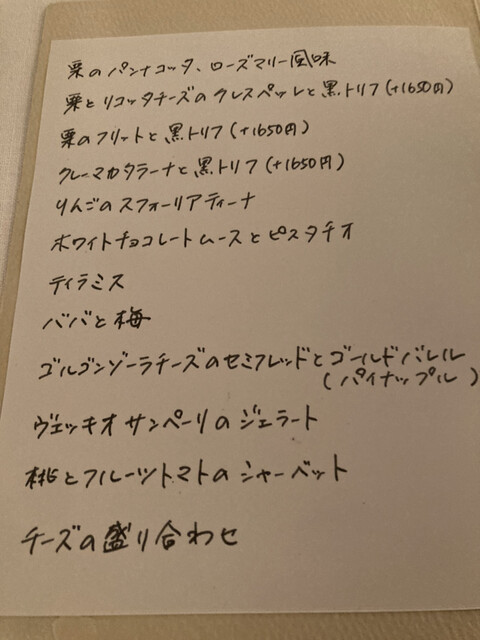 栗のパンナコッタ、ローズマリー風味
栗とリコッタチーズのクレスペッレと黒トリフ(+1650円)
栗のフリットと黒トリフ(+1650円)
クレーマカタラーナと黒トリフ(+1650円)
りんごのスフォーリアティーナ
ホワイトチョコレートムースとピスタチオ
ティラミス
ババと梅
ゴルゴンゾーラチーズのセミフレッドとゴールドバレル
(パイナップル)
ヴェッキオサンペーリのジェラート
桃とフルーツトマトのシャーベット
チーズの盛り合わせ